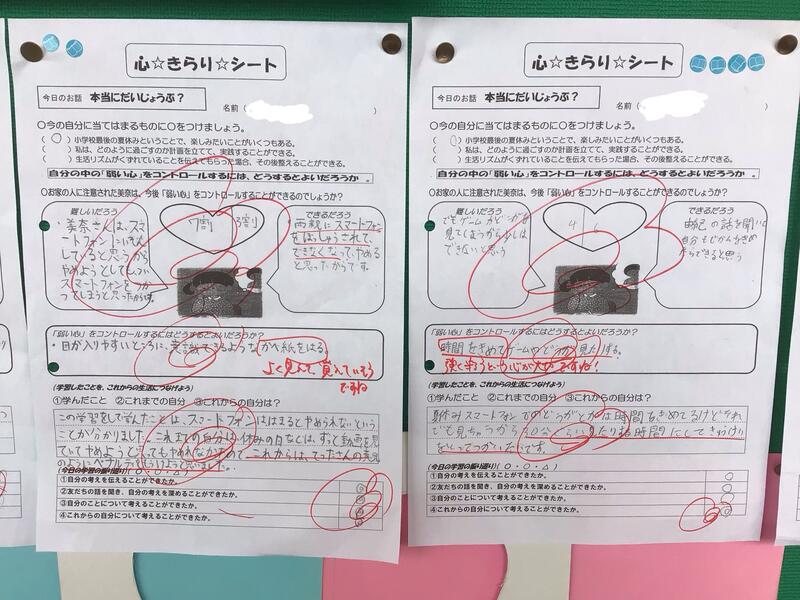 心☆きらり☆シート
今日のお話 本当にだいじょうぶ？
名前（ ）
○今の自分に当てはまるものに○をつけましょう。
（○）小学校最後の夏休みということで、楽しみたいことがいくつもある。
（ ）私は、どのように過ごすのか計画を立てて、実践することができる。
（ ）生活リズムがくずれていることを伝えてもらった場合、その後整えることができる。
自分の中の「弱い心」をコントロールするには、どうするとよいだろうか 。
○お家の人に注意された美奈は、今後「弱い心」をコントロールすることができるのでしょうか？
難しいだろう
・美奈さんは、スマ
ートフォンにいぞん
していると思うから
やめようとしてもつい
スマートフォンをつか
ってしまうと思ったからです。
7割 3割
できるだろう
両親にスマートフォン
をぼっしゅうされて、
できなくなって、やめる
と思ったからです。
「弱い心」をコントロールするにはどうするとよいだろうか？
・目が入りやすいところに、意識できるような かべ紙をはる。
よく見えて、覚えている
ですね
(学習したことを、これからの生活につなげよう)
①学んだこと ②これまでの自分 ③これからの自分は？
この学習をして学んだことは、スマートフォンははまるとやめられないという
ことが分かりました。これまでの自分は、休みの日などは、ずっと動画を見
ていてやめようと
(今日の学習の振り返り)（◎・○・△）
①自分の考えを伝えることができたか。
②友だちの話を聞き、自分の考えを深めることができたか。
③自分のことについて考えることができたか。
④これからの自分について考えることができたか。
心☆きらり☆シート
今日のお話 本当にだいじょうぶ？
名前（ ）
○今の自分に当てはまるものに○をつけましょう。
（ ）小学校最後の夏休みということで、楽しみたいことがいくつもある。
（ ）私は、どのように過ごすのか計画を立てて、実践することができる。
（ ）生活リズムがくずれていることを伝えてもらった場合、その後整えることができる。
自分の中の「弱い心」をコントロールするには、どうするとよいだろうか 。
○お家の人に注意された美奈は、今後「弱い心」をコントロールすることができるのでしょうか？
難しいだろう
でもゲームやどうがを
見てしまうから少しは
できないと思う
4 6
できるだろう
の話を聞いて
自分もじかんをきめ
たらできると思う
「弱い心」をコントロールするにはどうするとよいだろうか？
時間をきめてゲームやどうが見たりする。
強く守ろうとする心が大切ですね！
(学習したことを、これからの生活につなげよう)
①学んだこと ②これまでの自分 ③これからの自分は？
夏休みスマートフォンでのどうがとかは時間をきめてるけどそれ
でも見ちゃうから
(今日の学習の振り返り)（◎・○・△）
①自分の考えを伝えることができたか。
②友だちの話を聞き、自分の考えを深めることができたか。
③自分のことについて考えることができたか。
④これからの自分について考えることができたか。